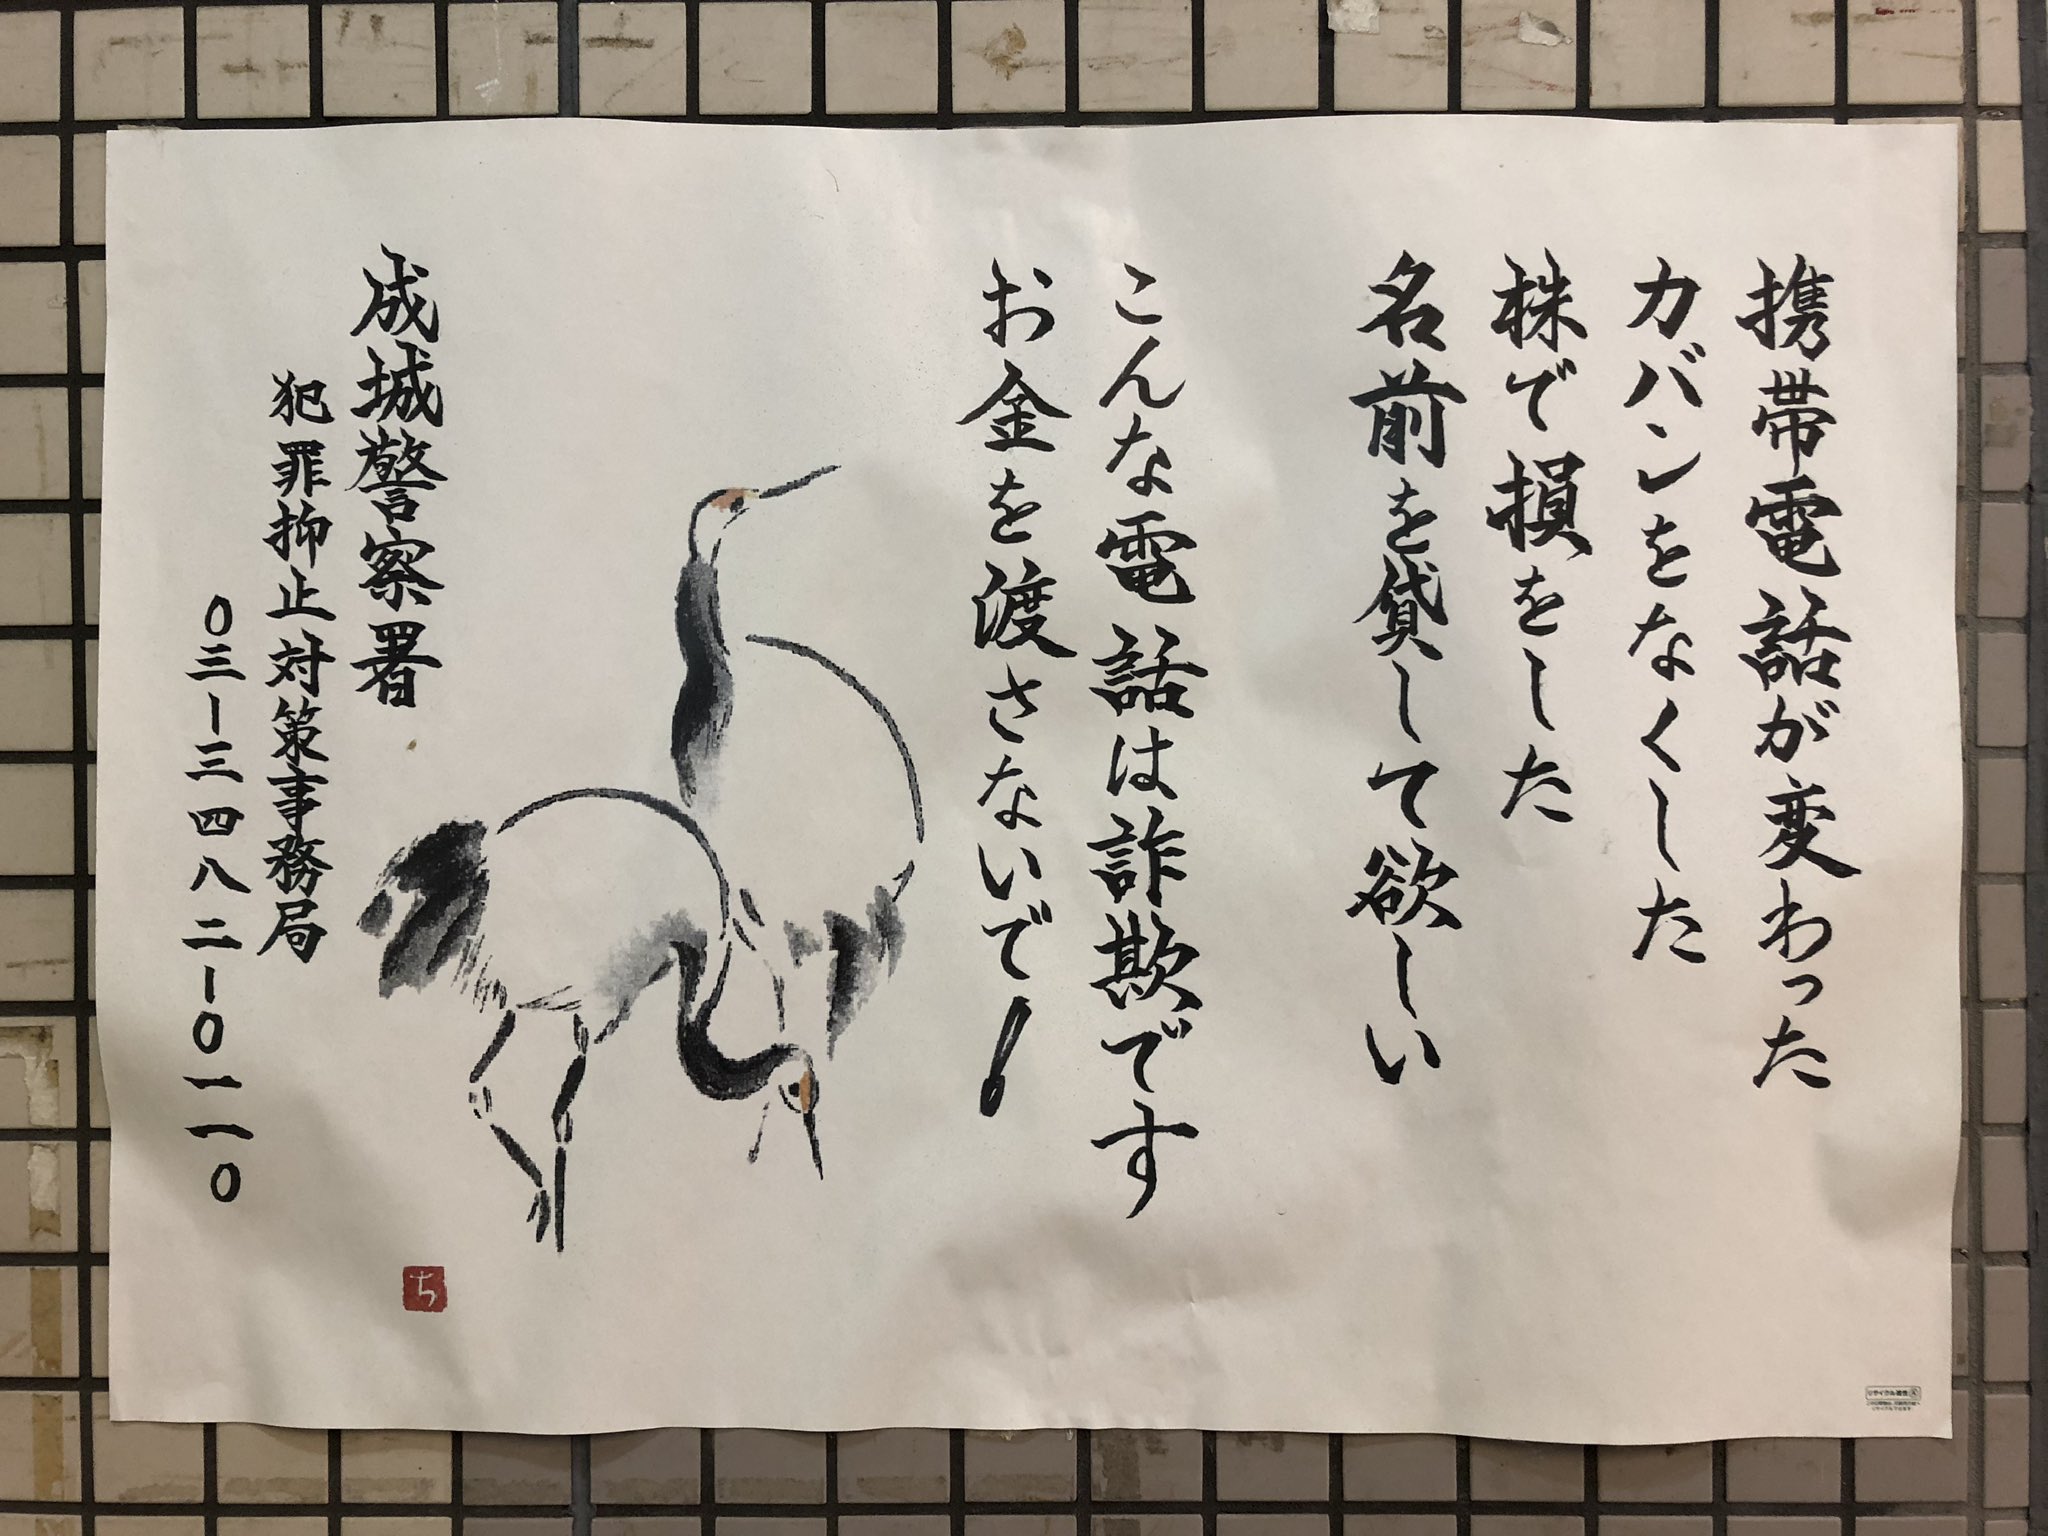 携帯電話が変わった
カバンをなくした
株で損をした
名前を貸して欲しい
こんな電話は詐欺です
お金を渡さないで!
成城警察署
犯罪抑止対策事務局
〇三ー三四八二ー〇一一〇
ち
リサイクル適性Ⓐ